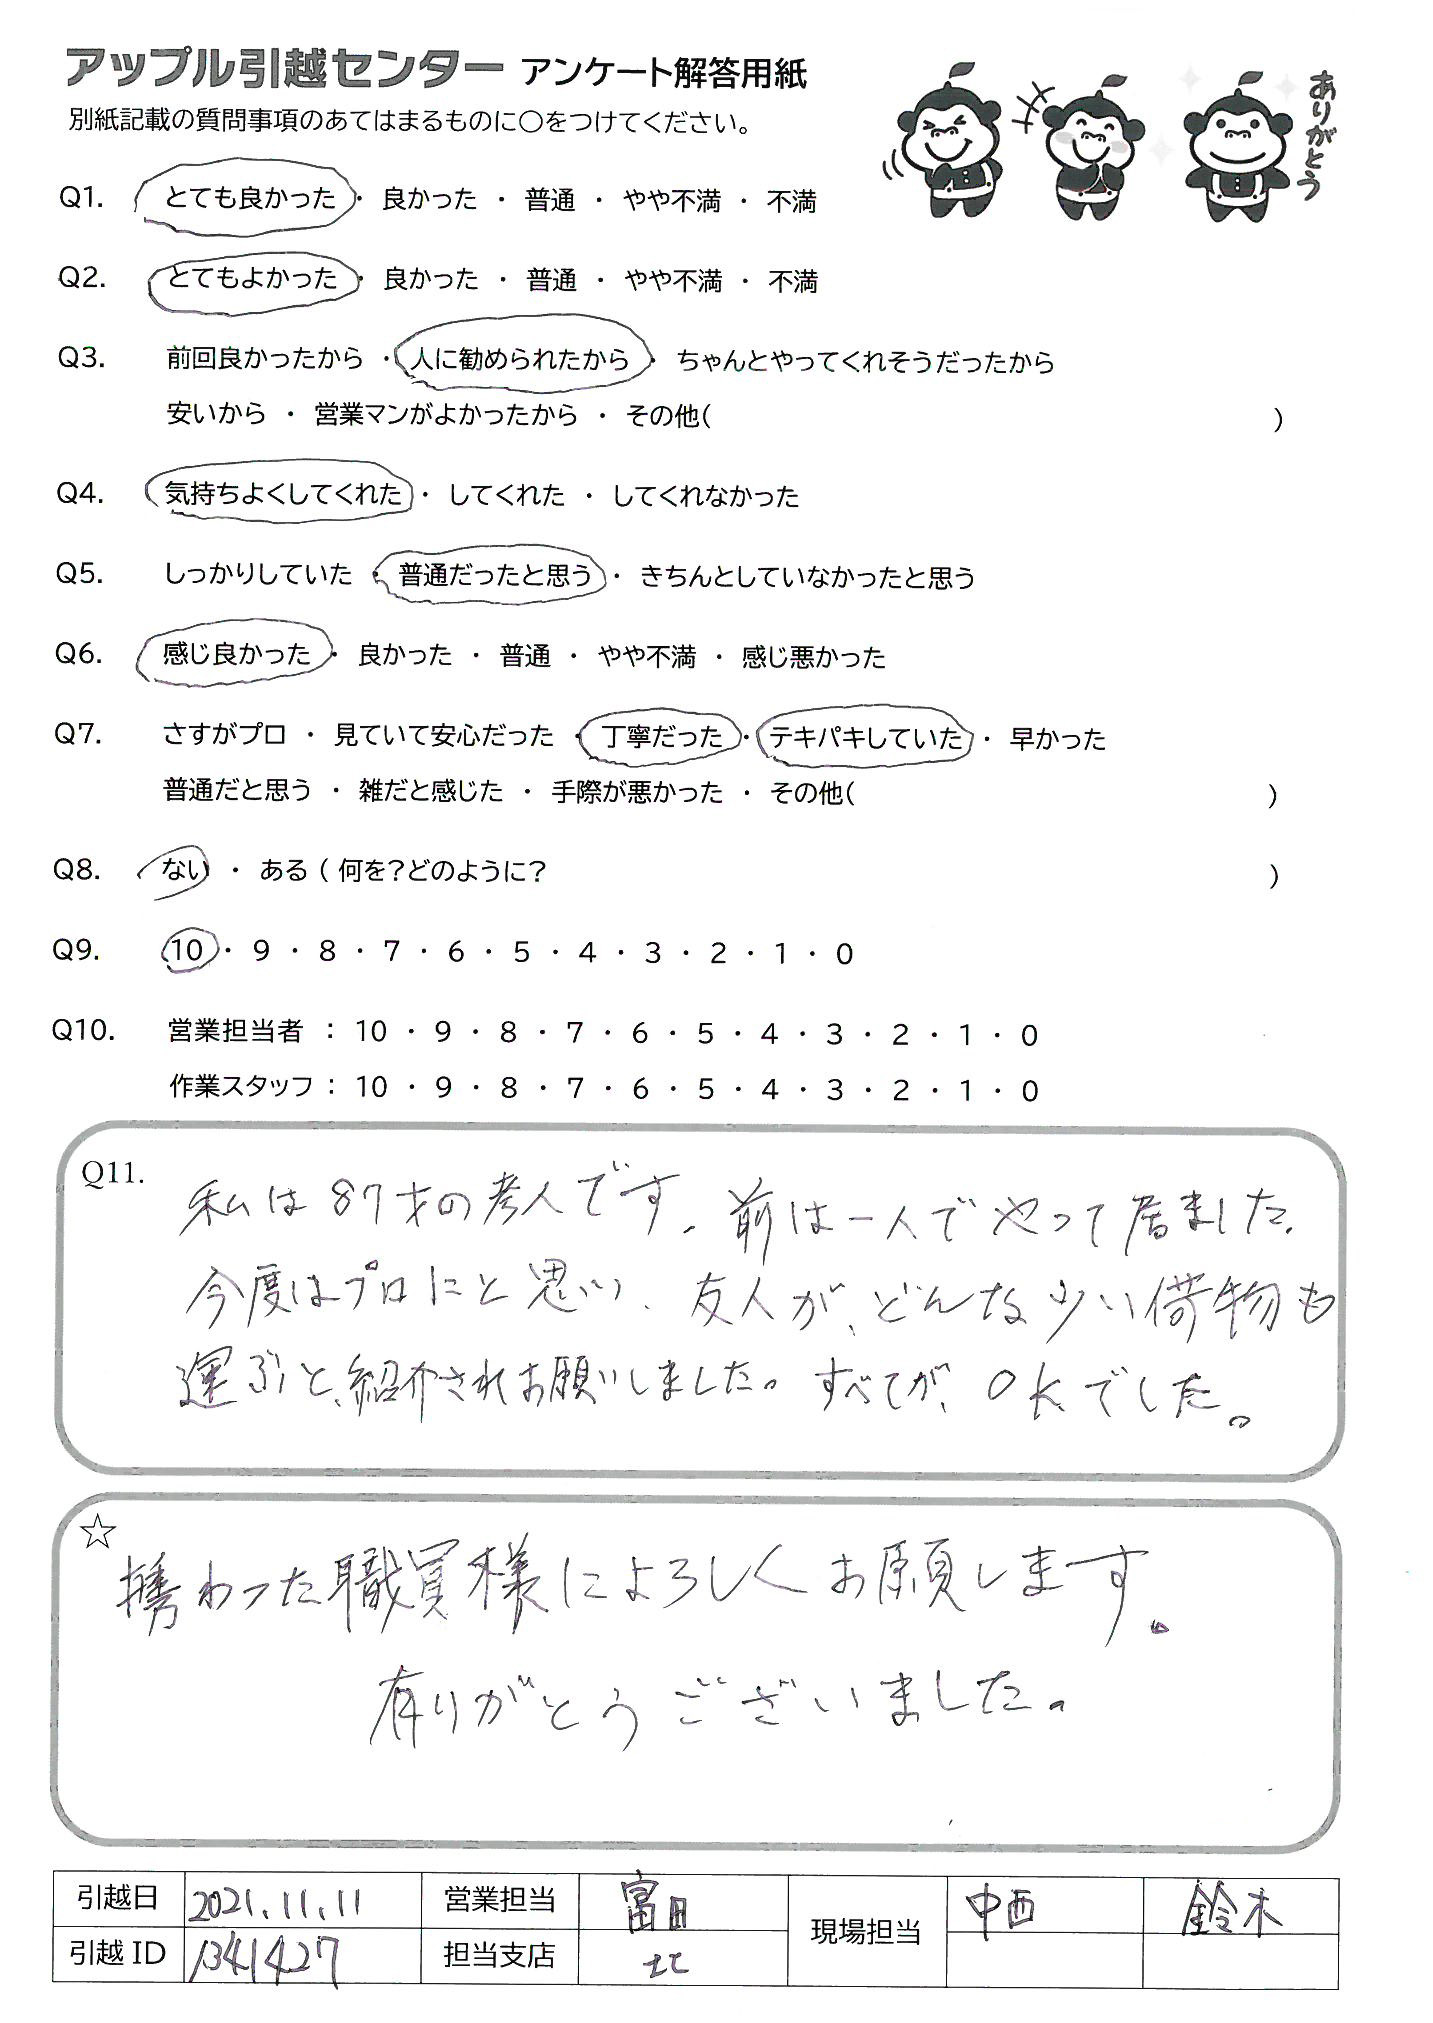 アップル引越センター アンケート解答用紙
別紙記載の質問事項のあてはまるものに〇をつけてください。
ありがとう
Q1. とても良かった ・ 良かった ・ 普通 ・ やや不満 ・ 不満
Q2. とてもよかった ・ 良かった ・ 普通 ・ やや不満 ・ 不満
Q3. 前回良かったから ・ 人に勧められたから ・ ちゃんとやってくれそうだったから
安いから ・ 営業マンがよかったから ・ その他( )
Q4. 気持ちよくしてくれた ・ してくれた ・ してくれなかった
Q5. しっかりしていた ・ 普通だったと思う ・ きちんとしていなかったと思う
Q6. 感じ良かった ・ 良かった ・ 普通 ・ やや不満 ・ 感じ悪かった
Q7. さすがプロ ・ 見ていて安心だった ・ 丁寧だった ・ テキパキしていた ・ 早かった
普通だと思う ・ 雑だと感じた ・ 手際が悪かった ・ その他( )
Q8. ない ・ ある ( 何を?どのように? )
Q9. 10 ・ 9 ・ 8 ・ 7 ・ 6 ・ 5 ・ 4 ・ 3 ・ 2 ・ 1 ・ 0
Q10. 営業担当者 : 10 ・ 9 ・ 8 ・ 7 ・ 6 ・ 5 ・ 4 ・ 3 ・ 2 ・ 1 ・ 0
作業スタッフ : 10 ・ 9 ・ 8 ・ 7 ・ 6 ・ 5 ・ 4 ・ 3 ・ 2 ・ 1 ・ 0
Q11. 私は87才の老人です。前は一人でやって居ました。
今度はプロにと思い、友人が、どんな少い荷物も
運ぶと、紹介されお願いしました。すべてが、OKでした。
☆
携わった職員様によろしくお願します。
有りがとうございました。
引越日 2021.11.11 営業担当 富田 現場担当 中西 鈴木
引越ID 1341427 担当支店 北